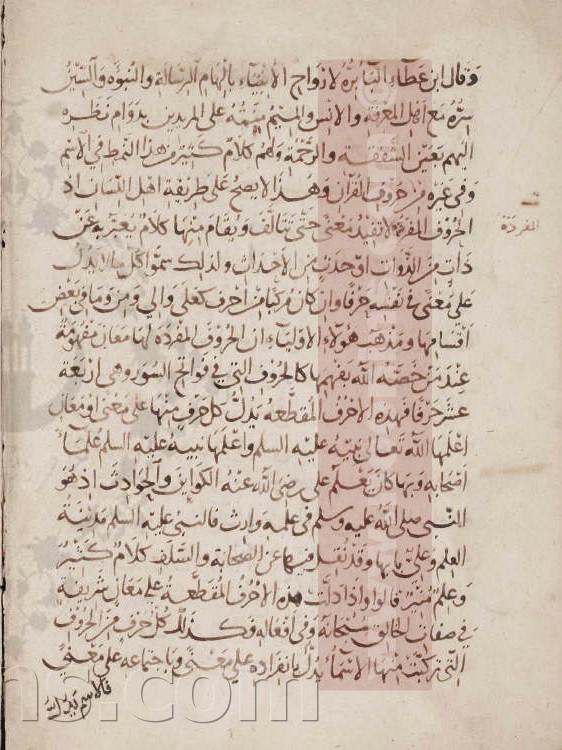 وقال ابن عطاء الباء بره لارواح الانبياء بالهام الرسالة والنبوة والسين
سره مع اهل المعرفة والانس والميم منته على المريدين بدوام نظره
اليهم بعين الشفقة والرحمة ولهم كلام كثير من هذا النمط في الاسم
وفي غيره من حروف القرآن وهذا لا يصح على طريقة اهل اللسان اذ
الحروف المفردة لا تفيد معنى حتى تتالف ويقام منها كلام يعبر به عن
ذات من الذوات او حدث من الاحداث ولذلك سموا كل ما لا يدل
على معنى في نفسه حرفا وان كان مركبا من احرف كعلى والى ومن وما وفي بعض
اقسامها ومذهب هولاء الاولياء ان الحروف المفردة لها معان مفهومة
عند من خصه الله بفهمها كالحروف التي في فواتح السور وهي اربعة
عشر حرفا فهذه الاحرف المقطعة يدل كل حرف منها على معنى او معان
اعلمها الله تعالى نبيه عليه السلم واعلمها نبيه عليه السلم علماء
اصحابه وبها كان يعلم علي رضي الله عنه الكواين والحوادث اذ هو
النبي صلى الله عليه وسلم في علمه وارث قال النبي عليه السلم مدينة
العلم وعلي بابها وقد نقل فيها عن الصحابة والسلف كلام كثير
وعلم قالوا واذا دلت هذه الاحرف المقطعة على معان شريفة
في صفات الخالق سبحانه وفي افعاله وكذلك كل حرف من الحروف
التي تركبت منها الاسماء يدل بانفراده على معنى وباجتماعه على معنى
فالاسم يدل
المفردة
ns.com